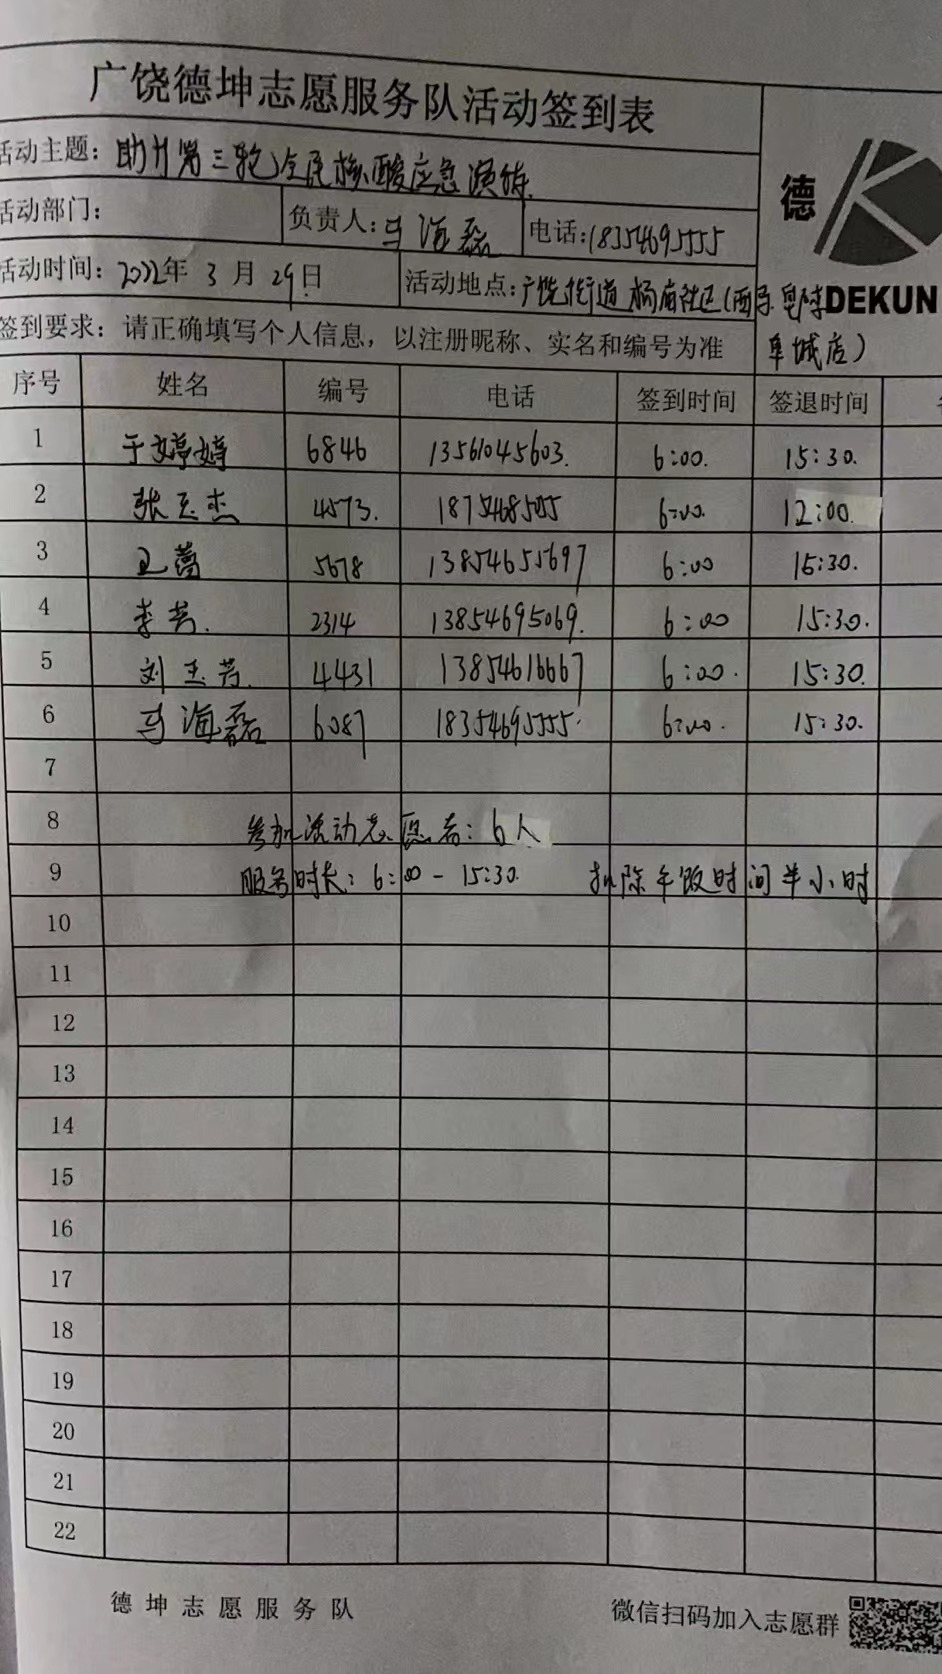 广饶德坤志愿服务队活动签到表
活动主题：助力第三轮全民核酸应急演练.
德
活动部门： 负责人：马海磊 电话：18354695555
活动时间：2022年 3 月 29日 活动地点：广饶街道杨庙社区(西
DEKUN
签到要求：请正确填写个人信息，以注册昵称、实名和编号为准 阜城店)
序号 姓名 编号 电话 签到时间 签退时间
1 于婷婷 6846 13561045603. 6:00. 15:30.
2 张玉杰 4573. 6:00. 12:00.
3 5678 13854655697 6:00 15:30.
4 李芳. 2314 13854695069. 6:00 15:30.
5 刘玉芳. 4431 13854616667 6:00. 15:30.
6 马海磊 6087 18354695555. 6:00. 15:30.
7
8 参加活动志愿者：6人
9 服务时长：6:00－15:30. 扣除午饭时间半小时
10
11
12
13
14
15
16
17
18
19
20
21
22
德坤志愿服务队 微信扫码加入志愿群